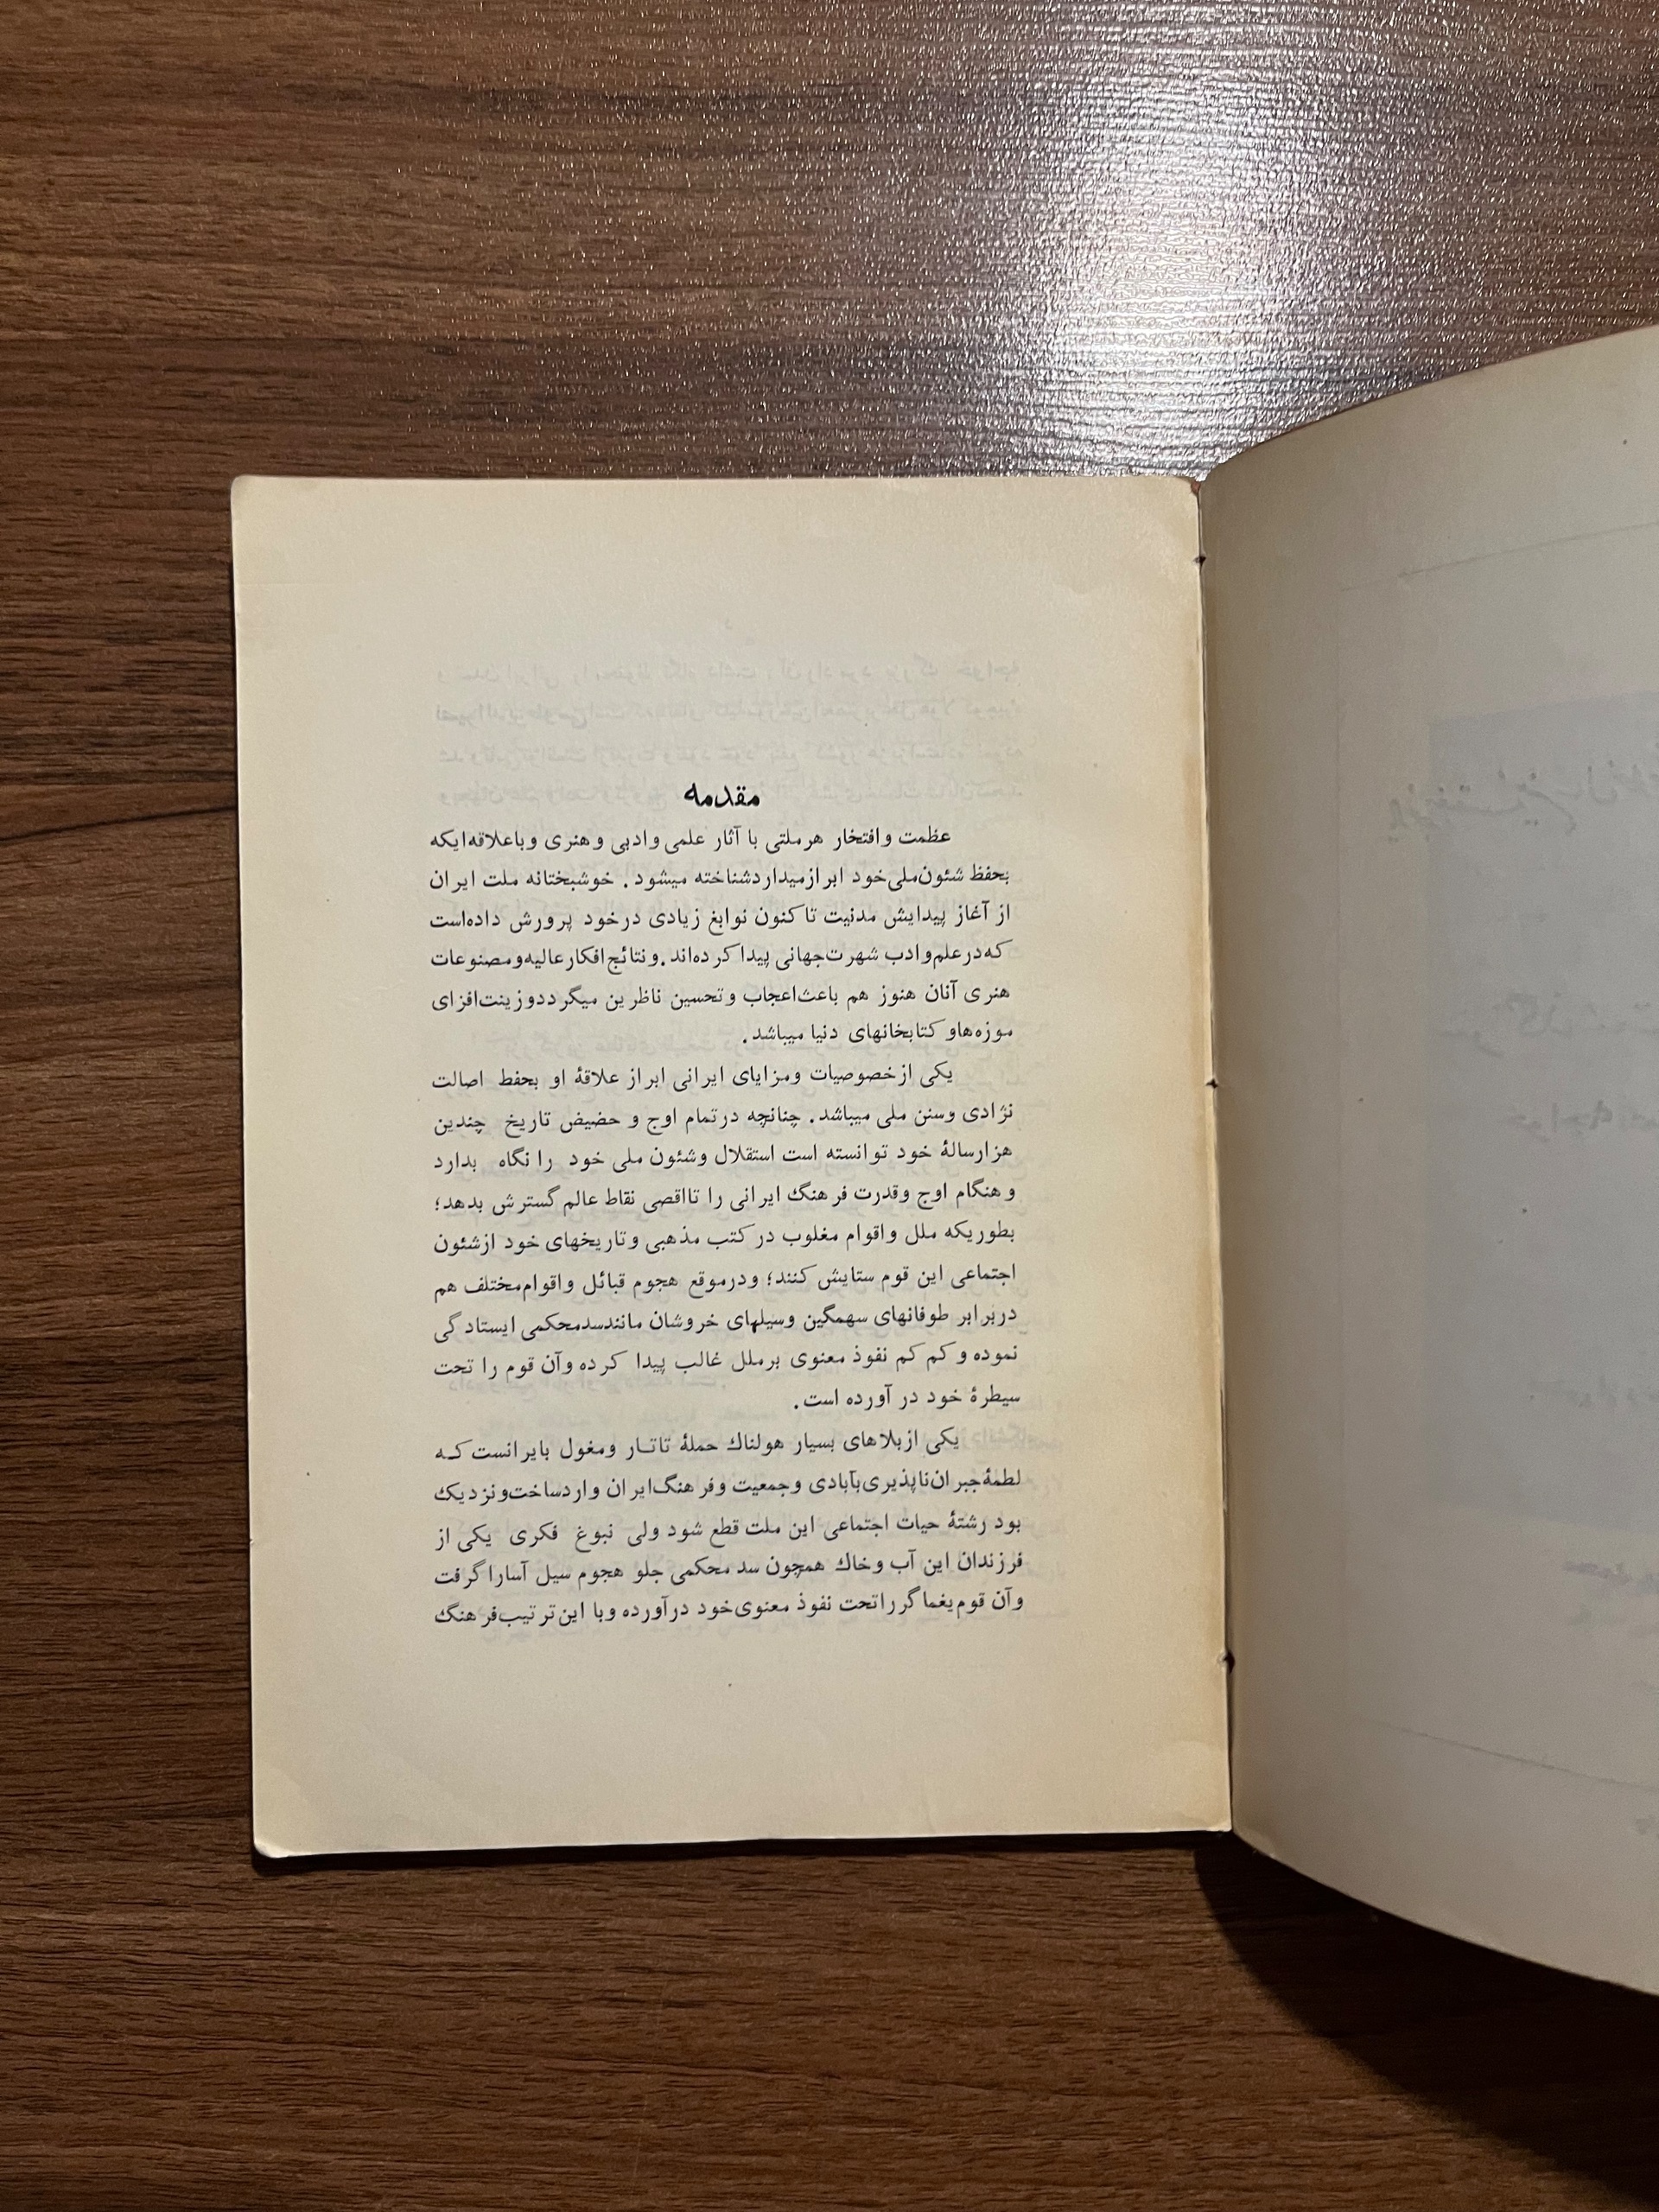 مقدمه
عظمت وافتخار هرملتی با آثار علمی وادبی وهنری وباعلاقه‌ایکه
بحفظ شئون‌ملی‌خود ابرازمیداردشناخته میشود . خوشبختانه ملت ایران
از آغاز پیدایش مدنیت تاکنون نوابغ زیادی درخود پرورش داده‌است
که‌درعلم‌وادب شهرت‌جهانی پیداکرده‌اند.ونتائج‌افکارعالیه‌ومصنوعات
هنری آنان هنوز هم باعث‌اعجاب وتحسین ناظرین میگرددوزینت‌افزای
موزه‌هاوکتابخانهای دنیا میباشد.
یکی ازخصوصیات ومزایای ایرانی ابراز علاقهٔ او بحفط اصالت
نژادی وسنن ملی میباشد. چنانچه درتمام اوج و حضیض تاریخ چندین
هزارسالهٔ خود توانسته است استقلال وشئون ملی خود را نگاه بدارد
وهنگام اوج وقدرت فرهنگ ایرانی را تااقصی نقاط عالم گسترش بدهد؛
بطوریکه ملل واقوام مغلوب درکتب مذهبی وتاریخهای خود ازشئون
اجتماعی این قوم ستایش کنند؛ ودرموقع هجوم قبائل واقوام‌مختلف هم
دربرابر طوفانهای سهمگین وسیلهای خروشان مانندسدمحکمی ایستادگی
نموده وکم کم نفوذ معنوی برملل غالب پیدا کرده وآن قوم را تحت
سیطرهٔ خود در آورده است.
یکی ازبلاهای بسیار هولناك حملهٔ تاتـار ومغول بایرانست کـه
لطمهٔ‌جبران‌ناپذیری‌بآبادی وجمعیت وفرهنگ‌ایران واردساخت‌ونزدیك
بود رشتهٔ حیات اجتماعی این ملت قطع شود ولی نبوغ فکری یکی از
فرزندان این آب وخاك همچون سد محکمی جلو هجوم سیل آساراگرفت
وآن قوم‌یغماگرراتحت نفوذ معنوی‌خود درآورده وبا این‌ترتیب‌فرهنگ